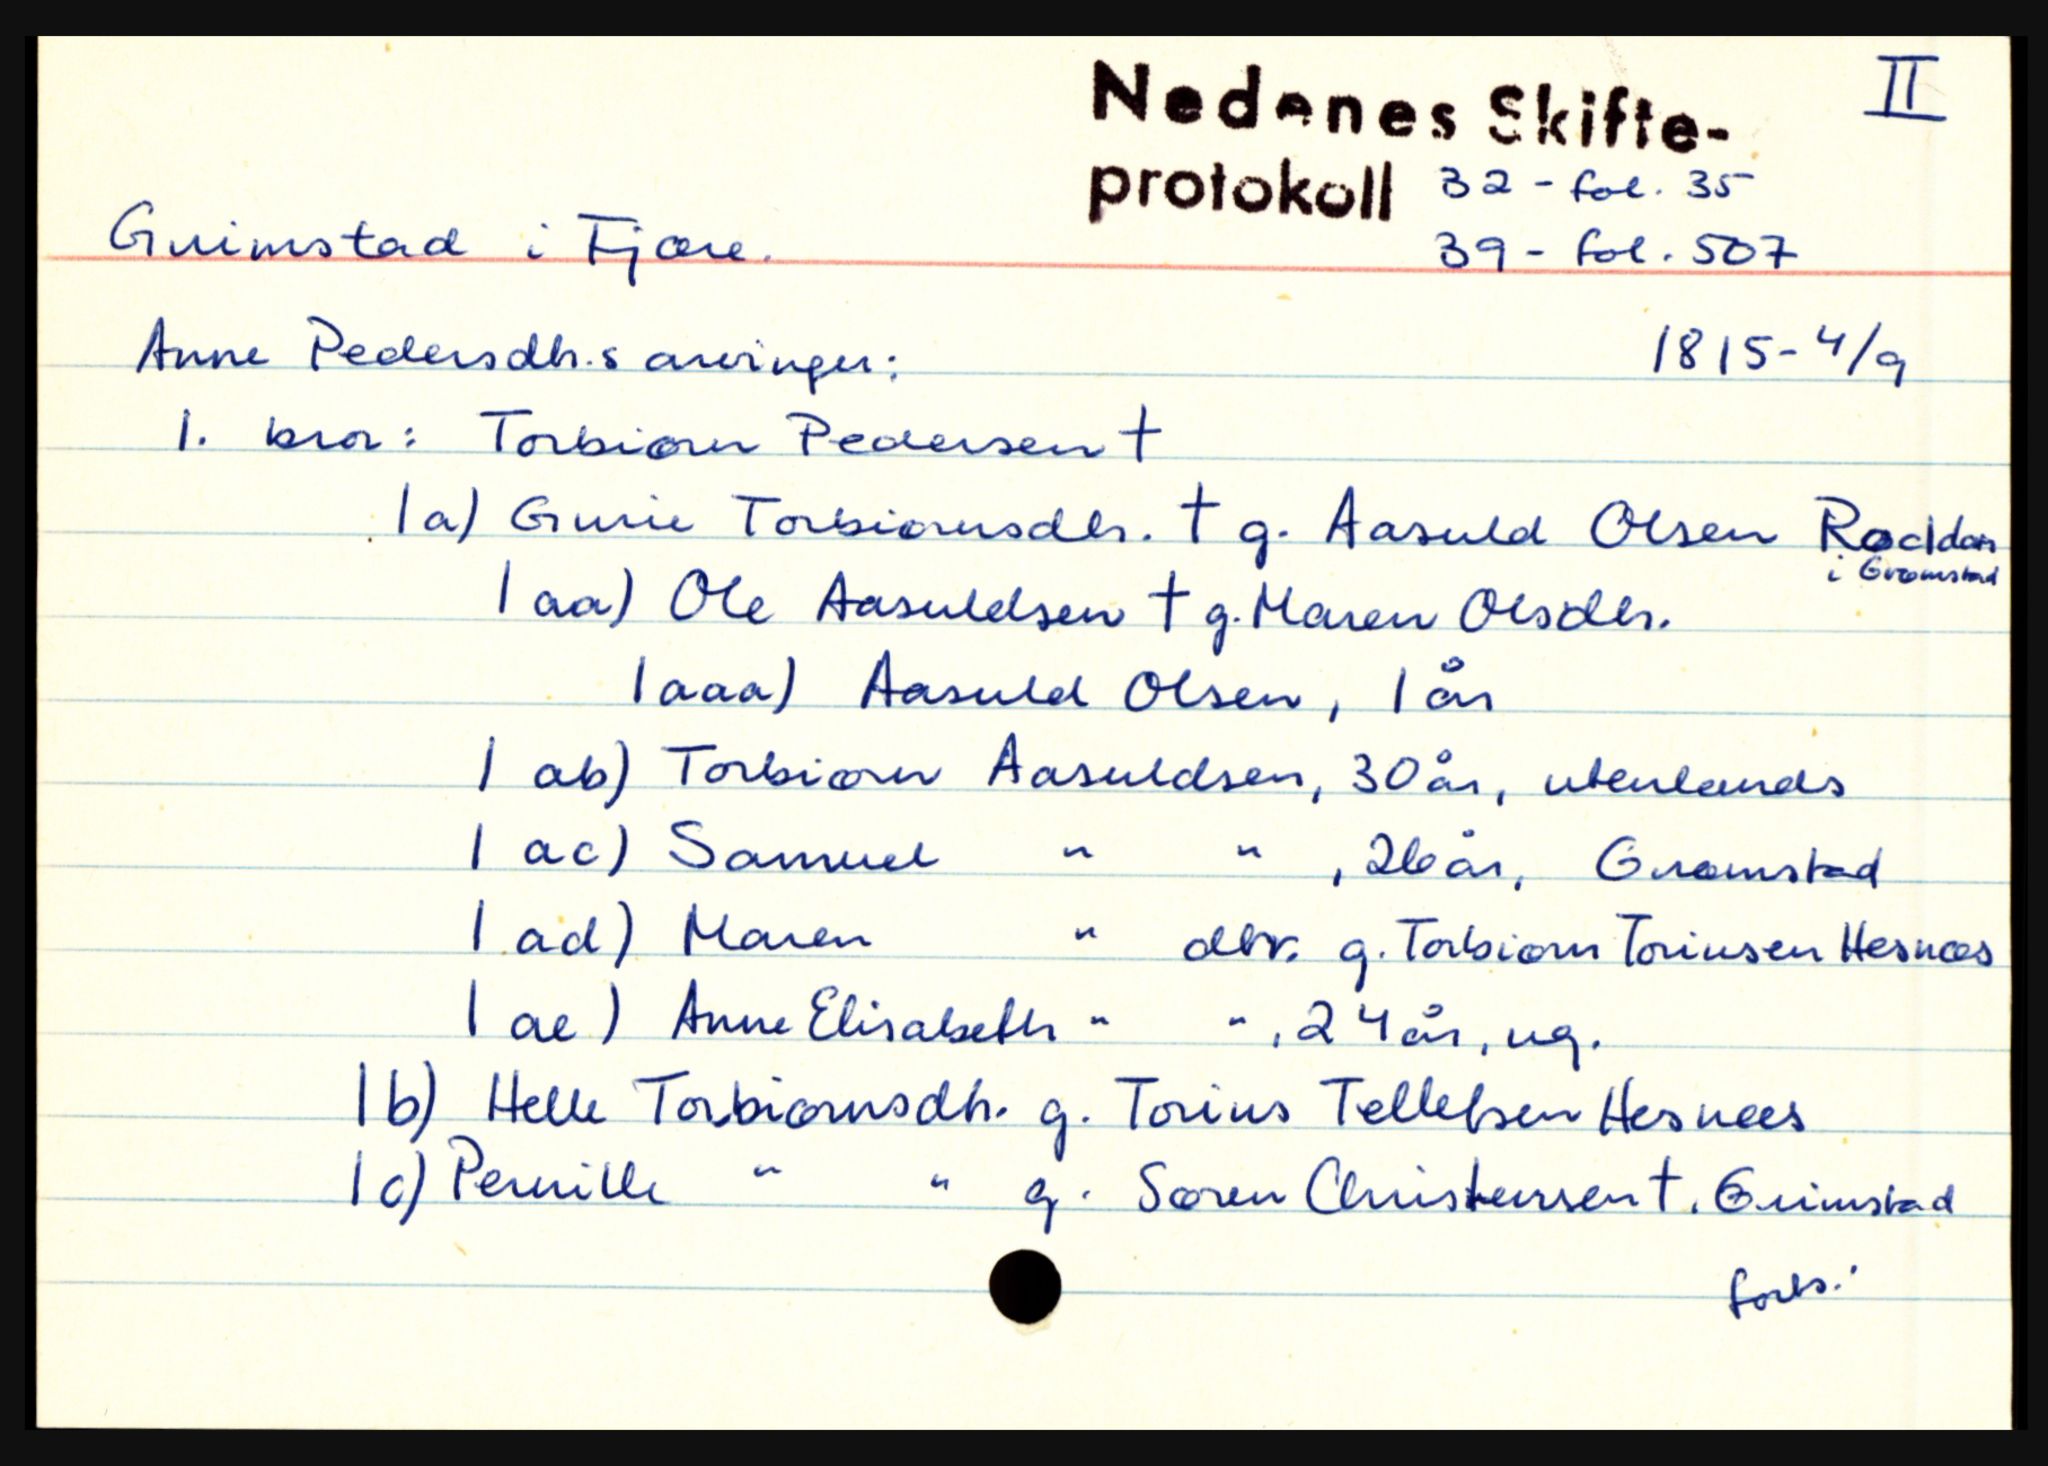 II
Nedenes Skifte-
protokoll 32 - fol. 35
39 - fol. 507
Grimstad i Fjære.
Anne Pedersdtr.s arvinger: 1815-4/9
1. bror: Torbiørn Pedersen †
1a) Gurie Torbiørnsdtr. † g. Aasuld Olsen Røddan
i Grømstad
1aa) Ole Aasuldsen † g. Maren Olsdtr.
1aaa) Aasuld Olsen, 1 år
1 ab) Torbiørn Aasuldsen, 30 år, utenlands
1 ac) Samuel " " , 26 år, Grømstad
1 ad) Maren " dtr. g. Torbiørn Toriusen Hesnæs
1 ae) Anne Elisabeth " " , 24 år, ug.
1b) Helle Torbiørnsdtr. g. Torius Tellefsen Hesnæs
1c) Pernille " " g. Søren Christensen †, Grimstad
forts.: